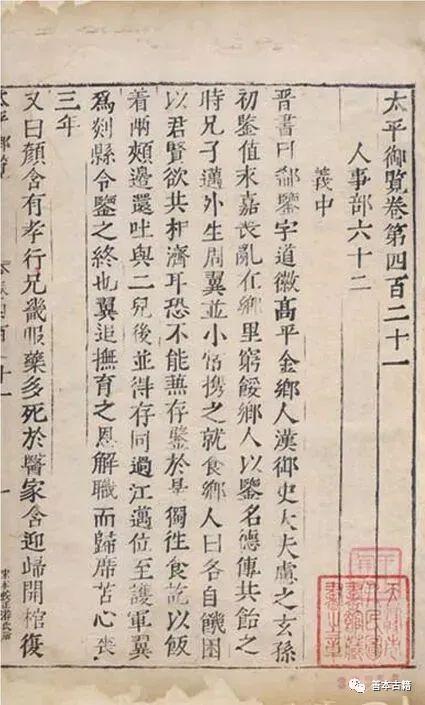 太平御覧卷第四百二十一
人事部六十二
義中
晉書曰郗鑒字道徽髙平金鄉人漢御史大夫慮之玄孫
初鑒值永嘉喪亂在鄉里窮餒鄉人以鑒名德傳共飴之
時兄子邁外生周翼並小常攜之就食鄉人曰各自饑困
以君賢欲共相濟耳恐不能兼存鑒於是獨徃食訖以飯
着兩頰邊還吐與二兒後並得存同過江邁位至護軍翼
爲剡縣令鑒之終也翼追撫育之恩解職而歸席苫心喪
三年
又曰顏含有孝行兄畿服藥多死於醫家含迎歸開棺復
太平御覽
善本古籍